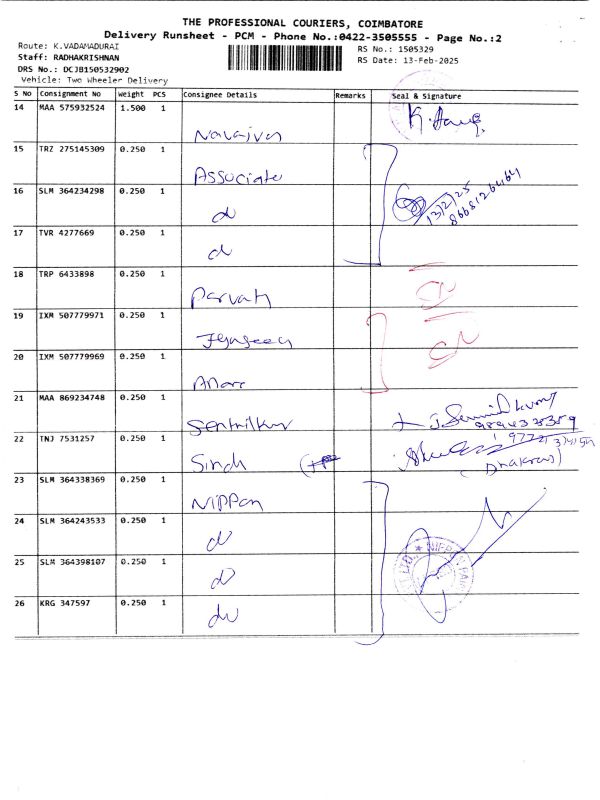 THE PROFESSIONAL COURIERS, COIMBATORE
Delivery Runsheet - PCM - Phone No.:0422-3505555 - Page No.:2
Route: K.VADAMADURAI
Staff: RADHAKRISHNAN
DRS No.: DCJB150532902
Vehicle: Two Wheeler Delivery
RS No.: 1505329
RS Date: 13-Feb-2025
S No Consignment No Weight PCS Consignee Details Remarks Seal & Signature
14 MAA 575932524 1.500 1
15 TRZ 275145309 0.250 1 Associate
16 SLM 364234298 0.250 1 d
13/2/25
17 TVR 4277669 0.250 1 d
18 TRP 6433898 0.250 1 Parvati
19 IXM 507779971 0.250 1
20 IXM 507779969 0.250 1
21 MAA 869234748 0.250 1 Senthilkur
22 TNJ 7531257 0.250 1 Sindh
23 SLM 364338369 0.250 1 Nippon
24 SLM 364243533 0.250 1 d
25 SLM 364398107 0.250 1 d
26 KRG 347597 0.250 1 do